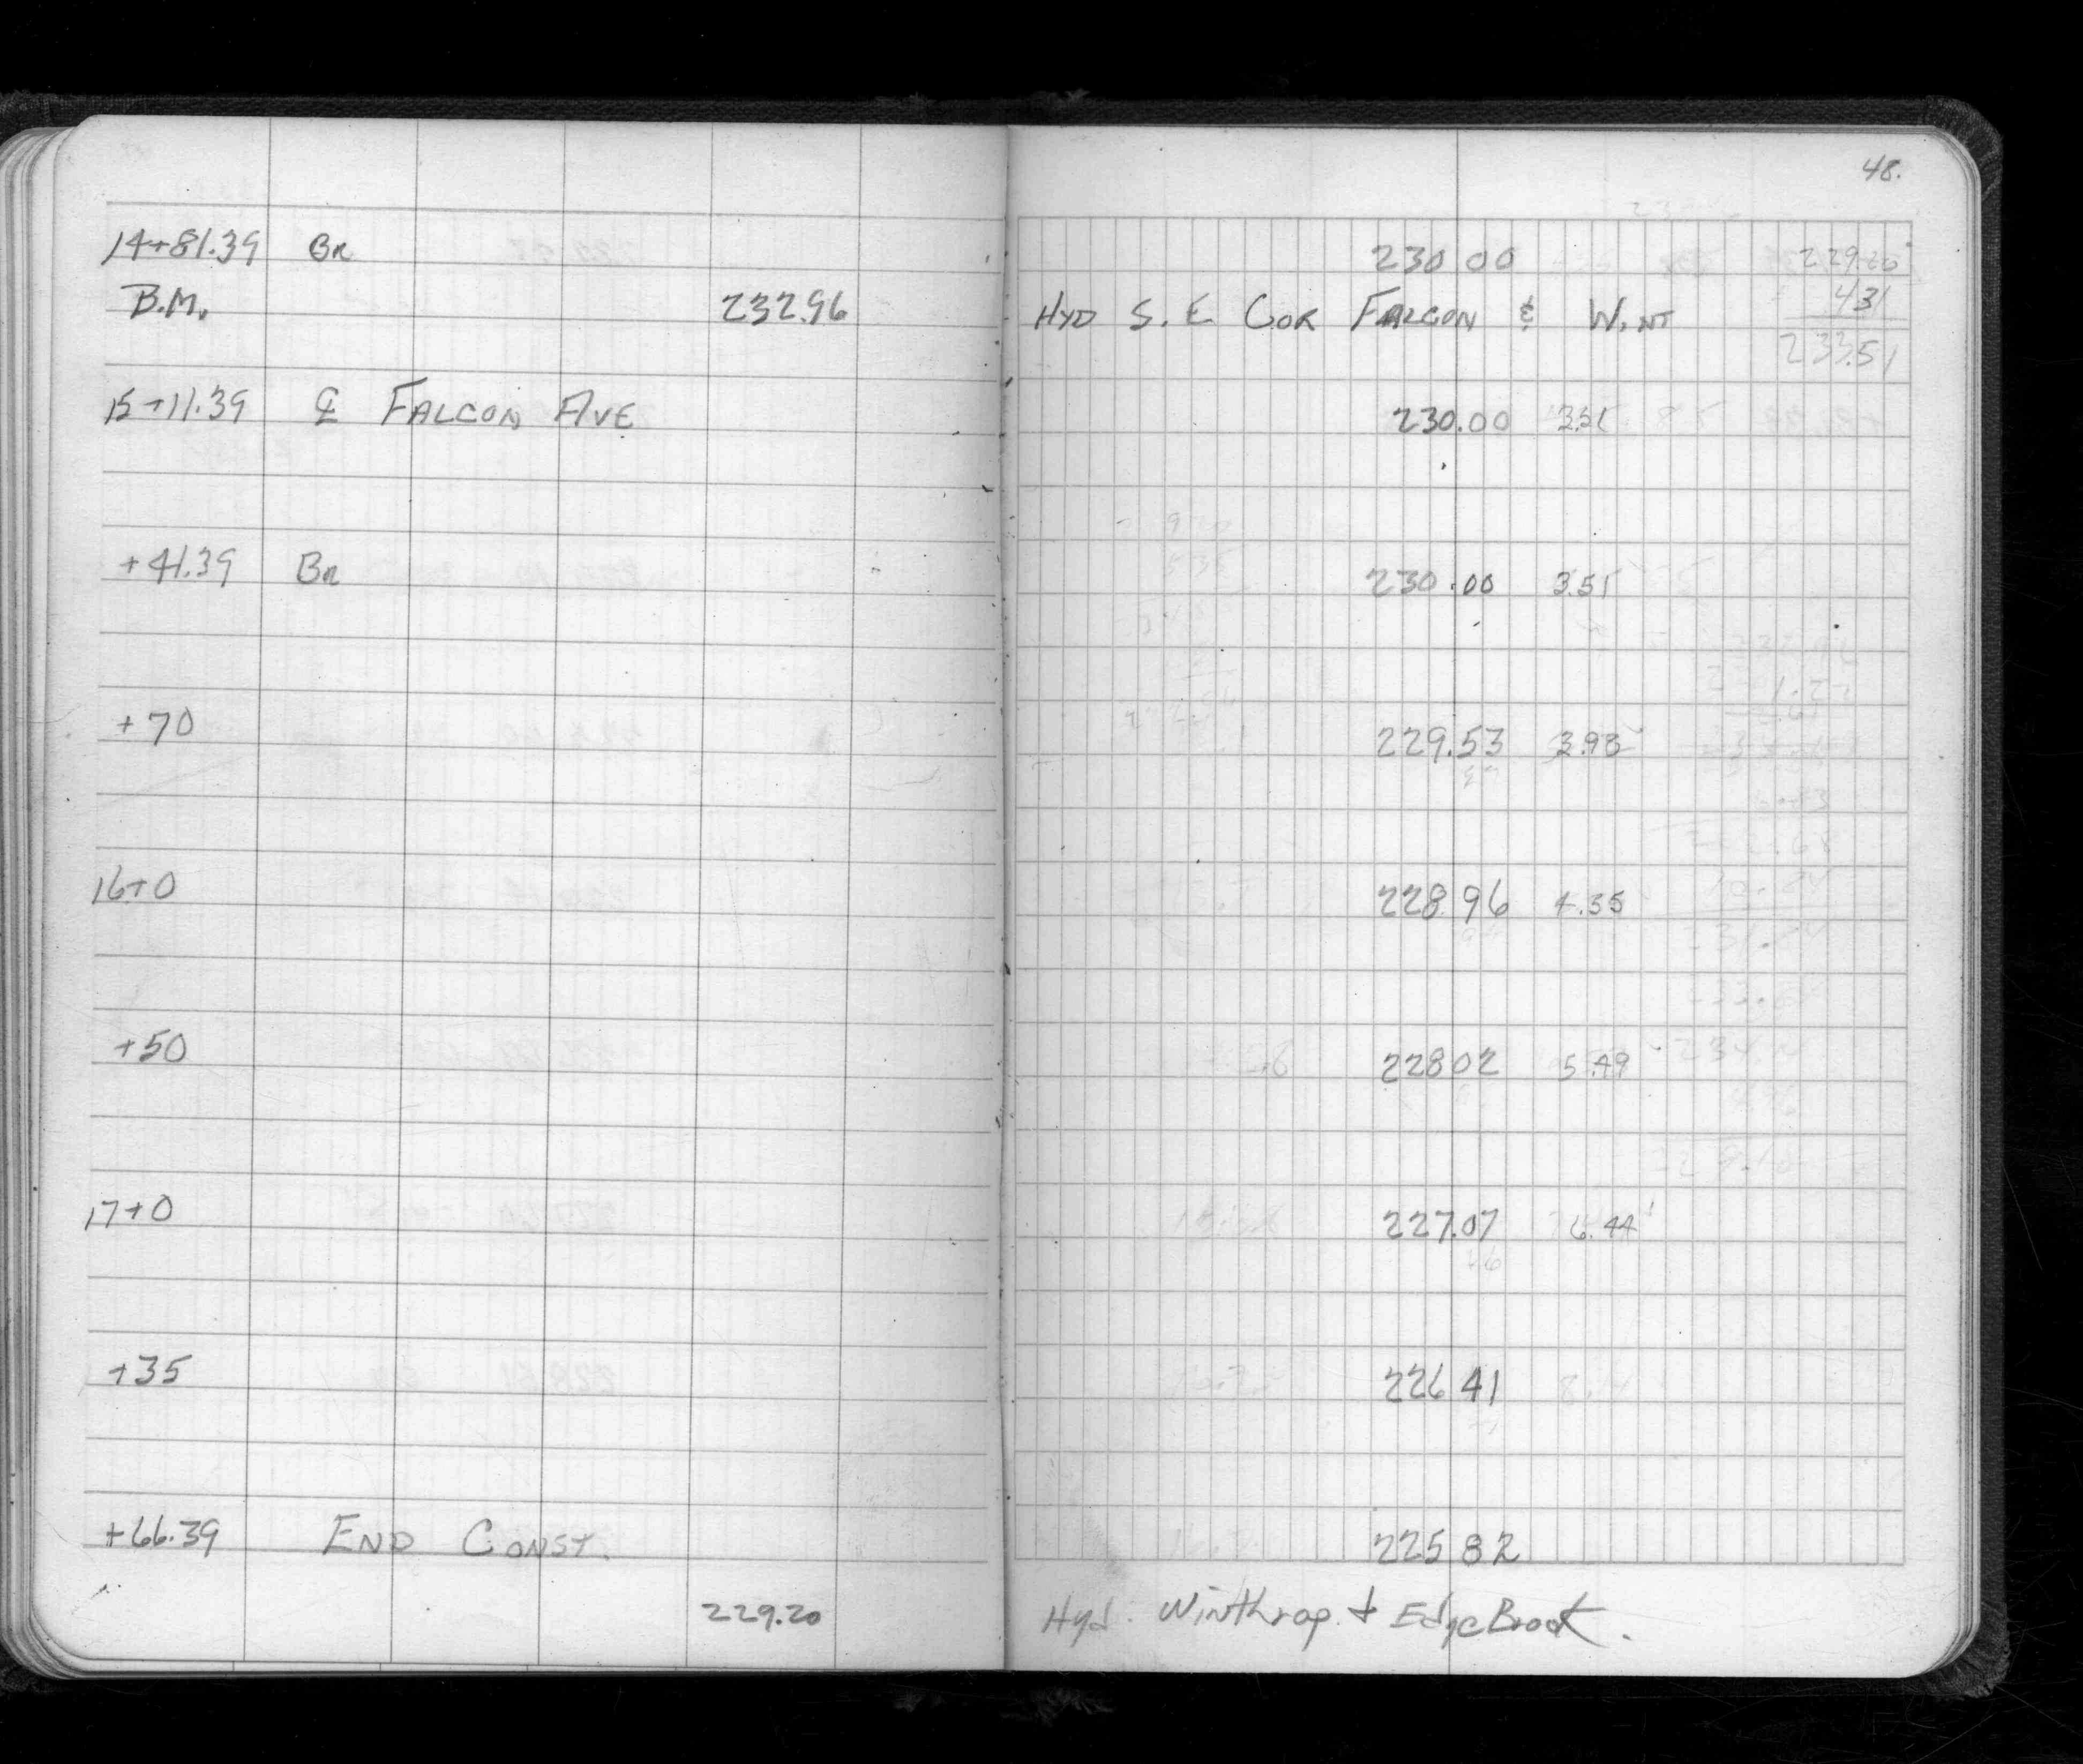 48.
14+81.39 BR 230.00 229.20
B.M. 232.96 HYD S. E COR FALCON & WINT 431
233.51
15+11.39 ℄ FALCON AVE 230.00 3.51
+41.39 BR 230.00 3.51
+70 229.53 3.93
16+0 228 96 4.35
+50 228 02 5.49
17+0 227.07 6.44
+35 226 41
+66.39 END CONST. 225 82
229.20 Hyd. Winthrop & EdgeBrook.